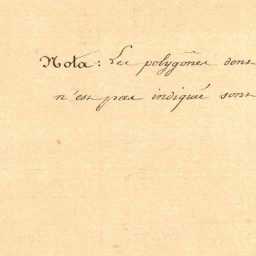 Nota: Les polygones dont
n'est pas indiqué sont